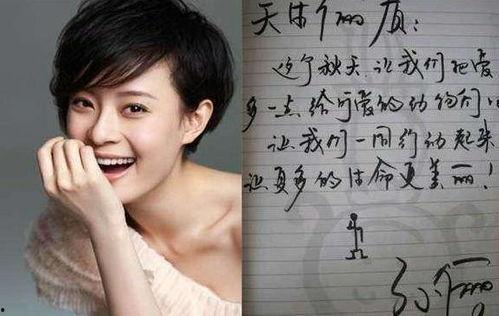 天生俪质：
这个秋天，让我们把爱
多一点给可爱的动物们！
让我们一同行动起来
让更多的生命更美丽！
孙俪